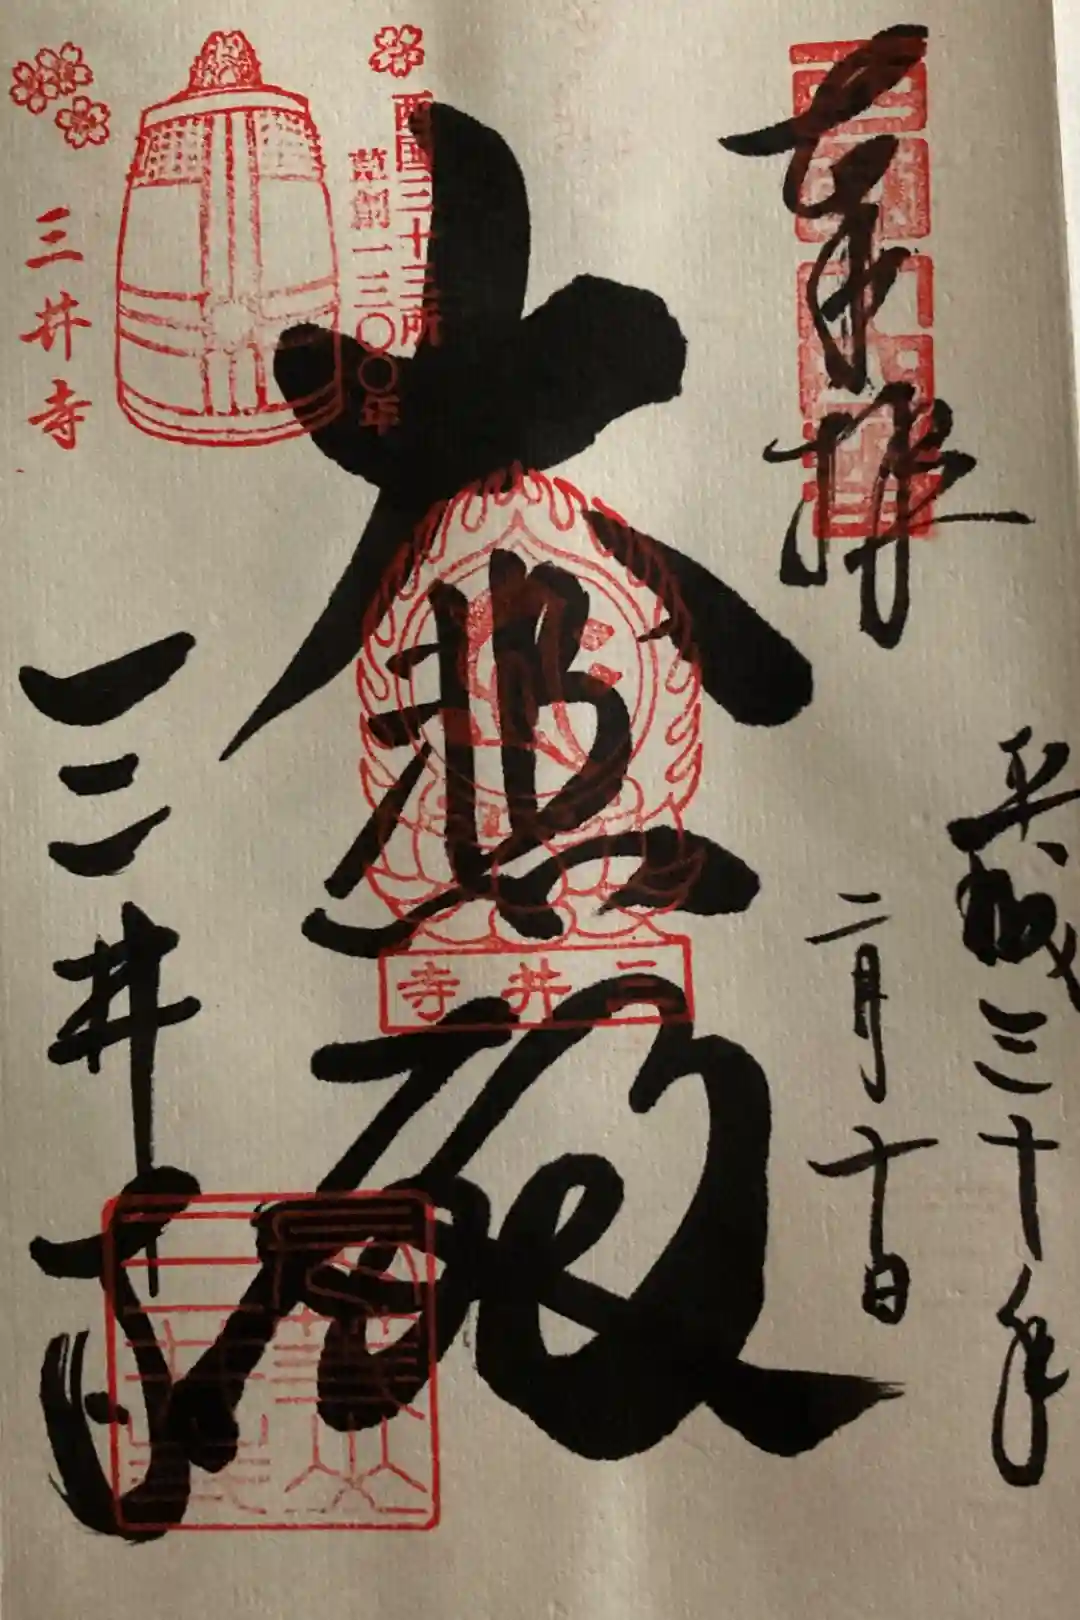 奉拝
平成三十年
二月十日
大悲殿
西国三十三所
草創一三〇〇年
三井寺
三井寺
三井寺